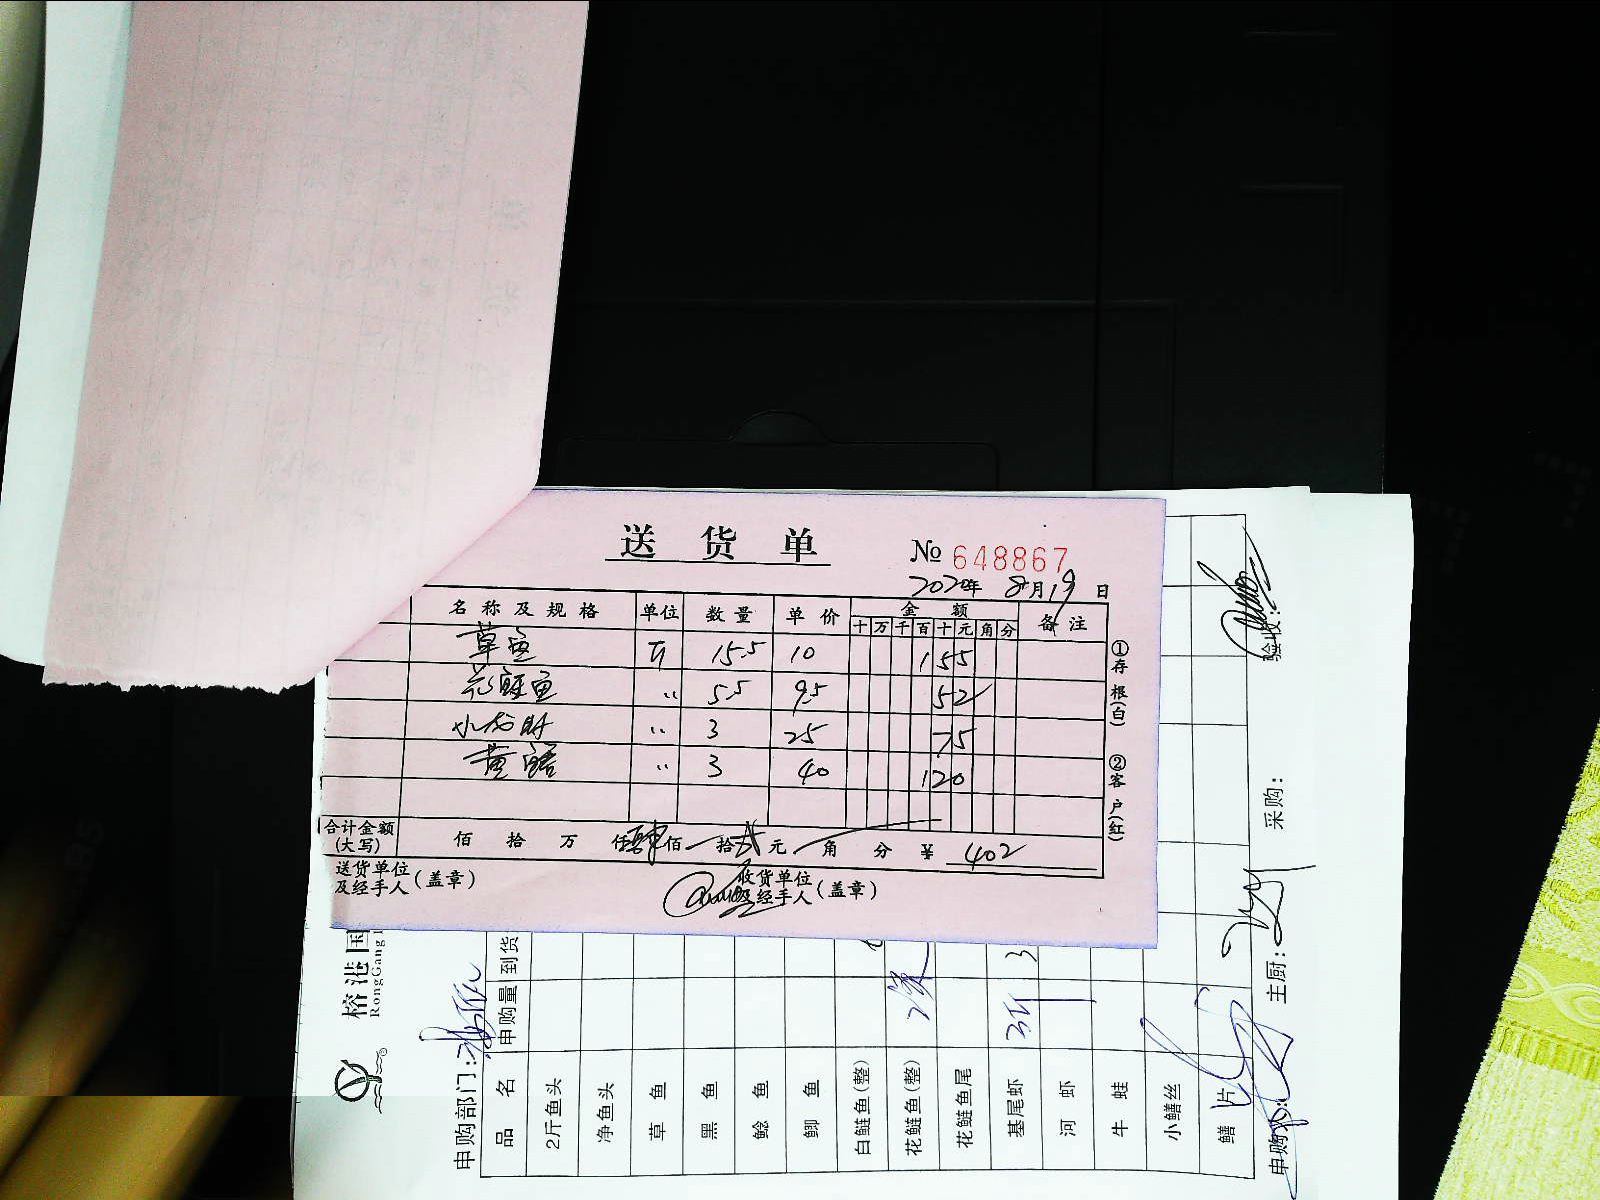 送 货 单
№ 648867
2020年 8月19日
名 称 及 规 格 单位 数 量 单 价 金 额 备 注
十 万 千 百 十 元 角 分
草鱼 斤 15.5 10 155
花鲢鱼 〃 5.5 9.5 52
小龙虾 〃 3 25 75
黄鳝 〃 3 40 120
合计金额
(大写) 佰 拾 万 仟 肆佰 拾贰元 角 分 ¥ 402
送货单位
及经手人(盖章)
收货单位
及经手人(盖章)
①存根(白)
②客户(红)
榕港国
RongGang
申购部门:
品 名 申购量 到货
2斤鱼头
净鱼头
草 鱼
黑 鱼
鲶 鱼
鲫 鱼
白鲢鱼(整
花鲢鱼(整) 1条
花鲢鱼尾
基尾虾 3斤 3
河 虾
牛 蛙
小鳝丝
鳝 片
申购: 主厨: 采购: 验收: